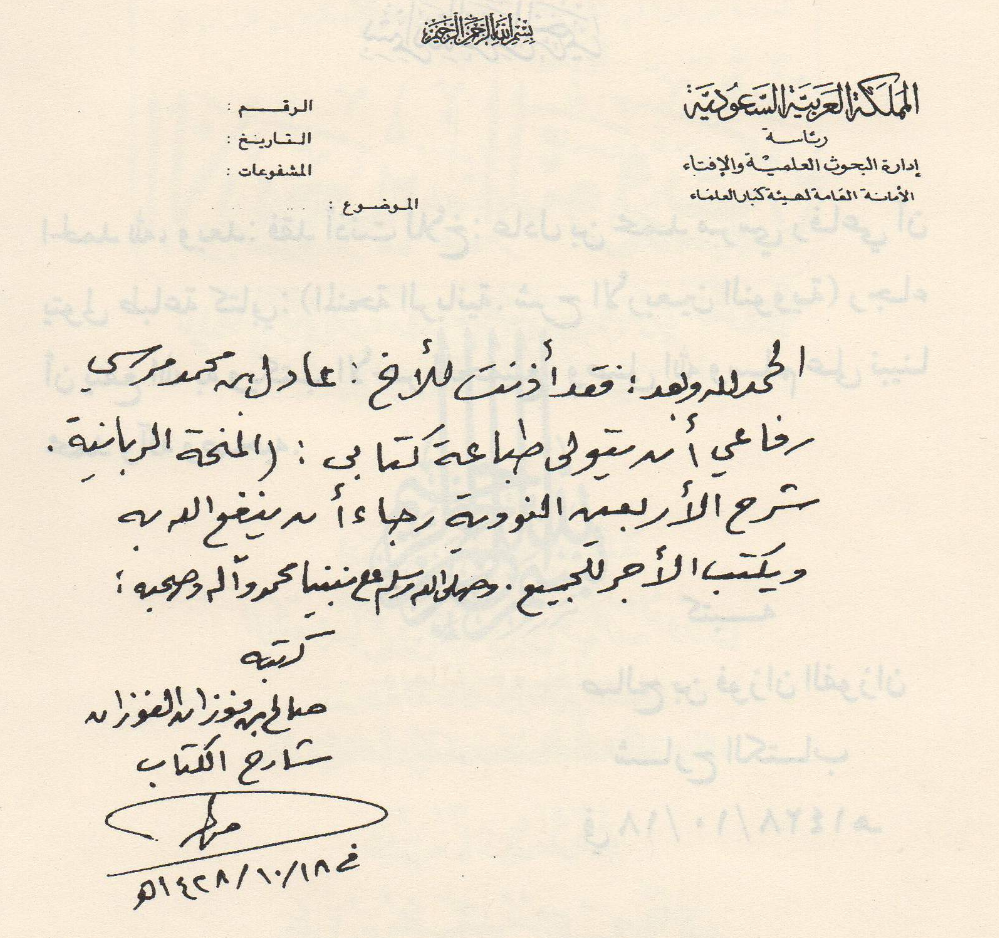 بسم الله الرحمن الرحيم
المملكة العربية السعودية
رئاسة
إدارة البحوث العلمية والإفتاء
الأمانة العامة لهيئة كبار العلماء
الرقم :
التاريخ :
المشفوعات :
الموضوع :
الحمد لله وبعد : فقد أذنت للأخ : عادل بن محمد مرسي
رفاعي أن يتولى طباعة كتابي : (المنحة الربانية .
شرح الأربعين النووية رجاء أن ينفع الله به
ويكتب الأجر للجميع . وصلى الله وسلم على نبينا محمد وآله وصحبه ؛
كتبه
صالح بن فوزان الفوزان
شارح الكتاب
في ١٨/١٠/١٤٢٨هـ